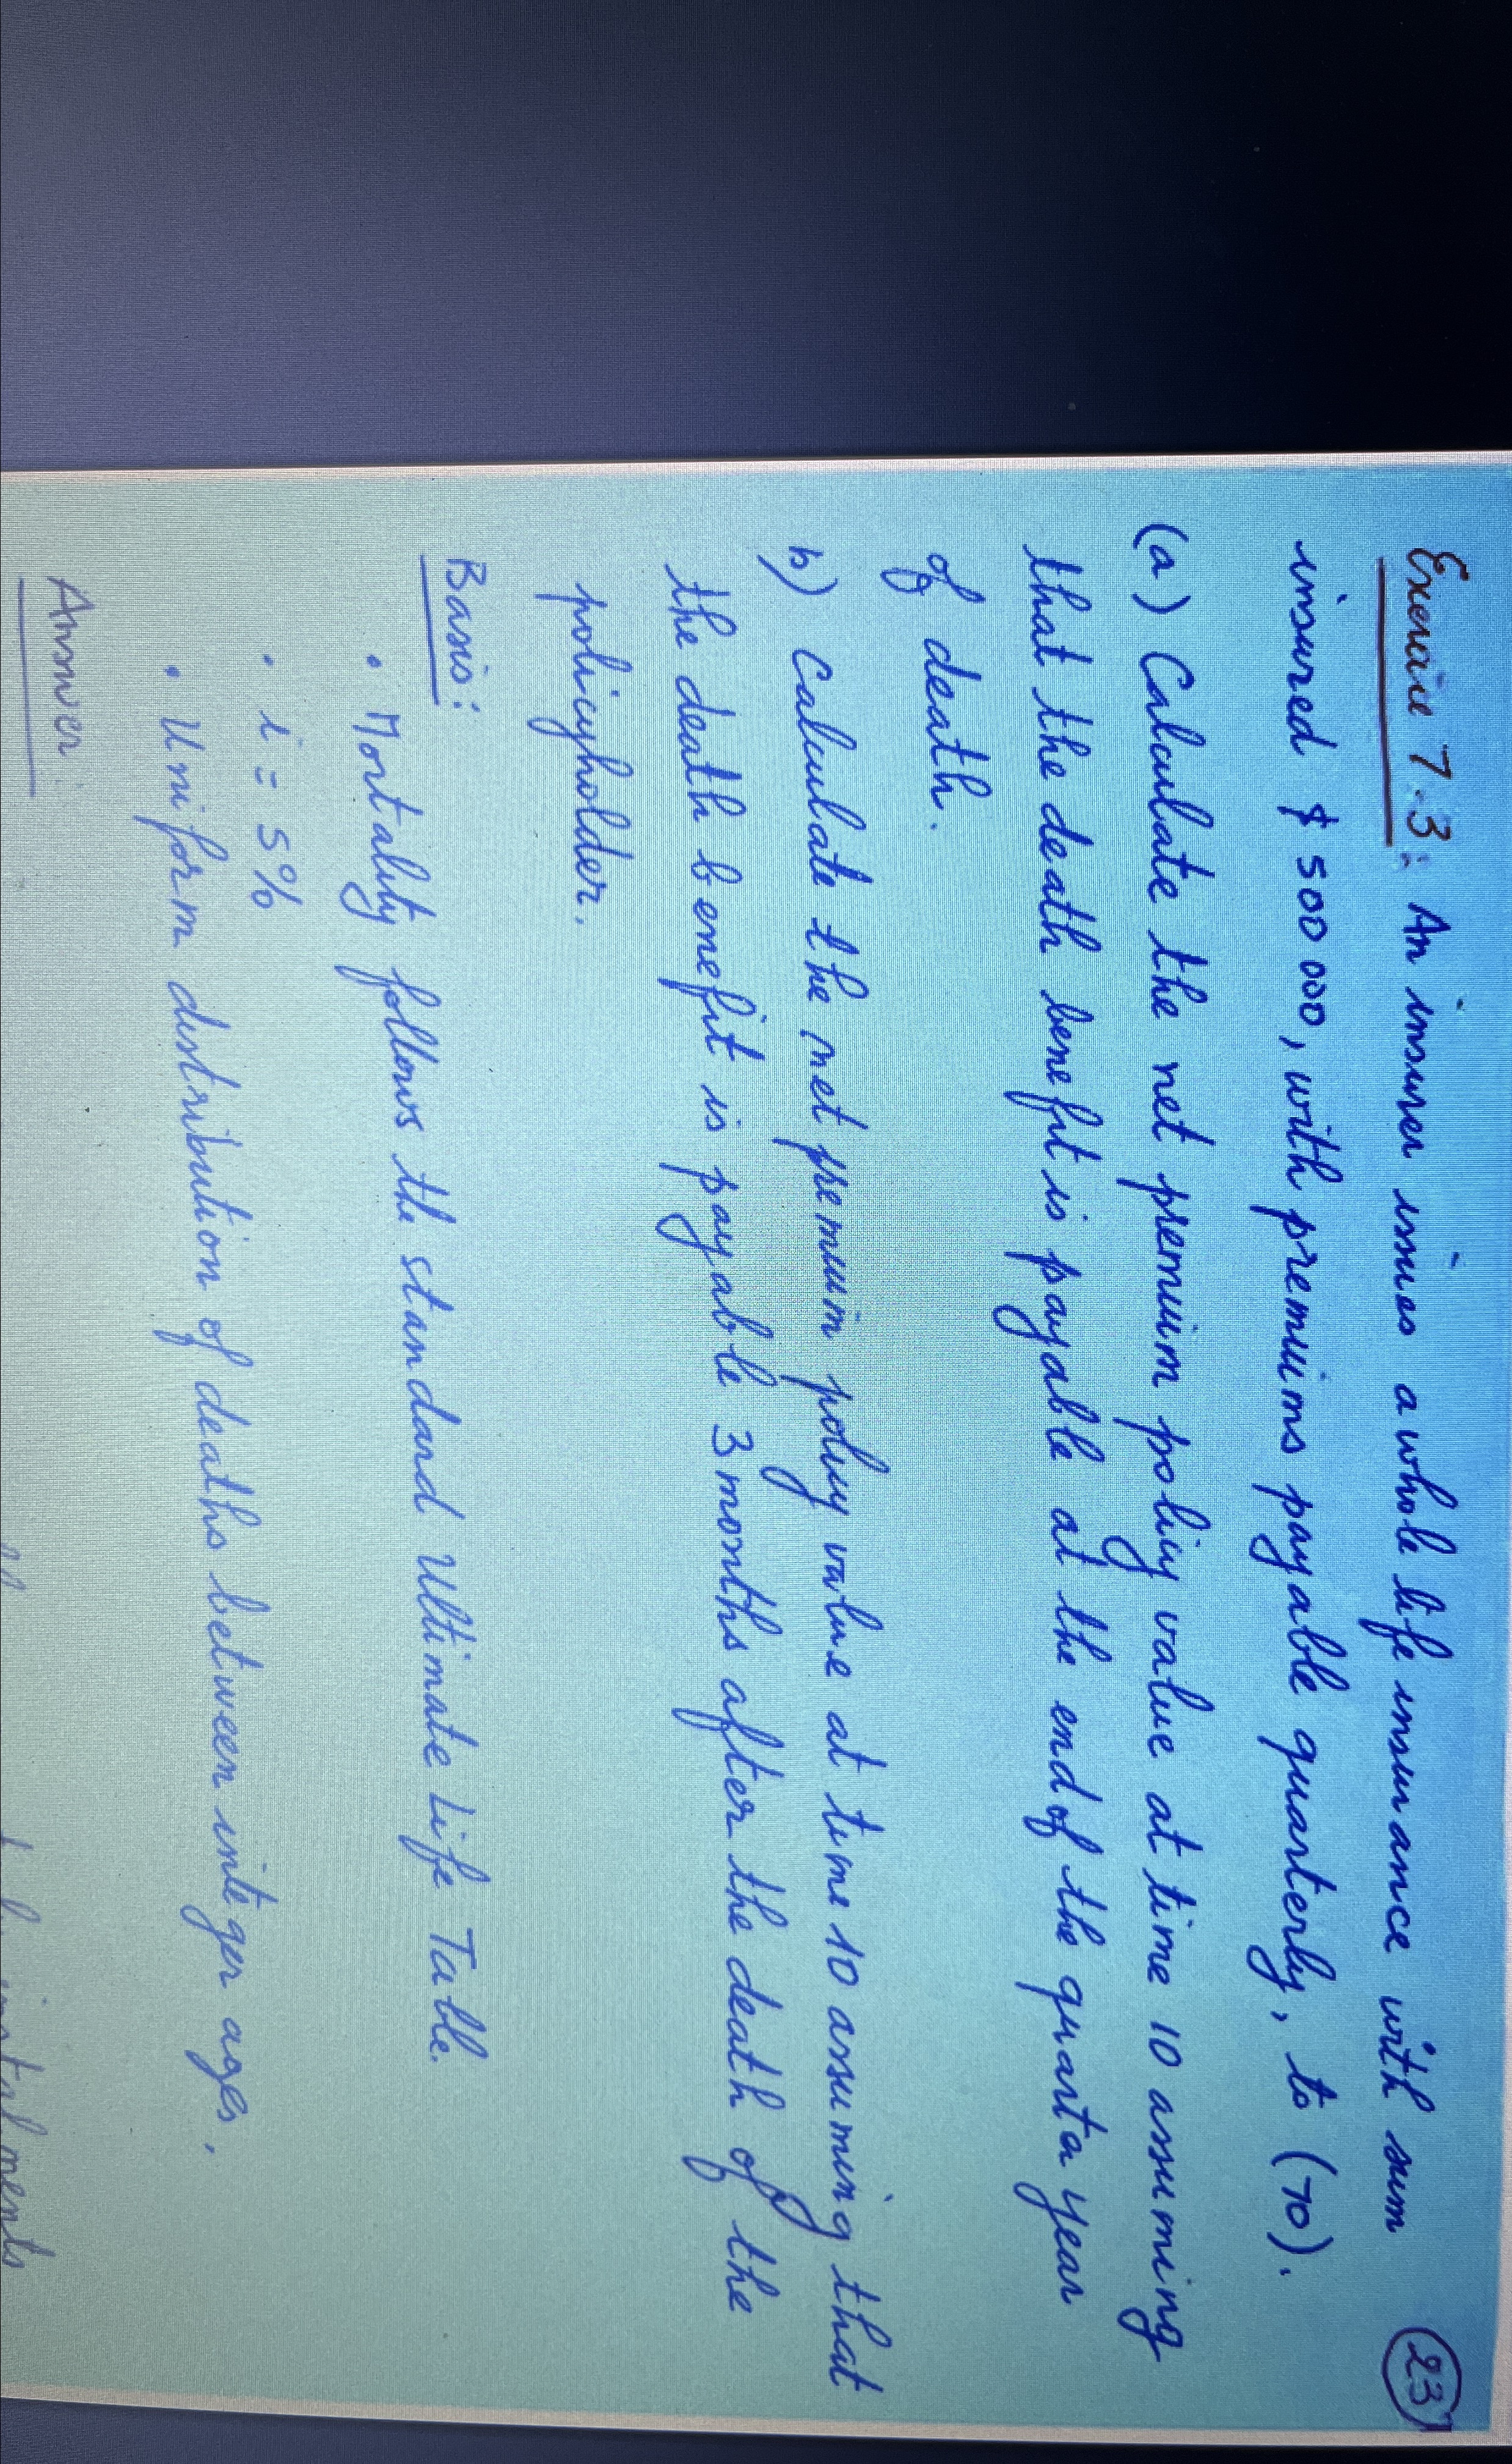 Exercise 7.3: An insurer issues a whole life insurance with sum
23
insured $ 500 000, with premiums payable quarterly, to (70).
(a) Calculate the net premium policy value at time 10 assuming
that the death benefit is payable at the end of the quarter year
of death.
b) Calculate the net premium policy value at time 10 assuming that
the death benefit is payable 3 months after the death of the
policyholder.
Basis:
• Mortality follows the standard Ultimate Life Table.
• i = 5%
• Uniform distribution of deaths between integer ages.
Answer